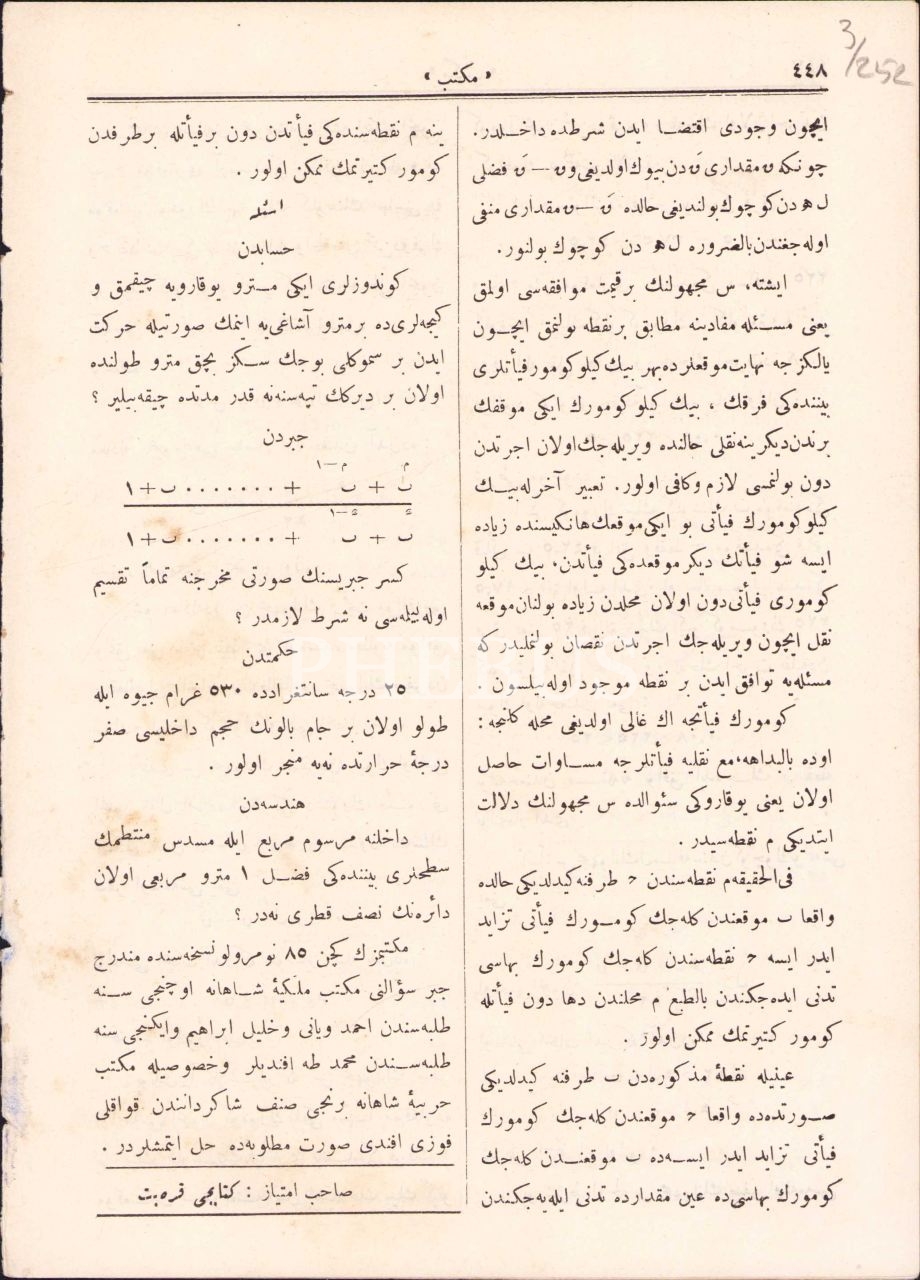 3/252
٤٤٨
« مكتب »
ایچون وجودی اقتضا ایدن شرطده داخلدر.
چونكه ں مقداری ںَ دن بیوك اولدیغی و ں — ںَ فضلی
ل ه دن كوچوك بولندیغی حالده ںَ — ں مقداری منفی
اوله جغندن بالضروره ل ه دن كوچوك بولنور.
ایشته، س مجهولنك بر قیمت موافقه سی اولمق
یعنی مسئله مفادینه مطابق بر نقطه بولنمق ایچون
یالكز جه نهایت موقعلرده بهر بیك كیلو كومور فیأتلری
بیننده كی فرقك ، بیك كیلو كومورك ایكی موقفك
برندن دیكرینه نقلی حالنده ویریله جك اولان اجرتدن
دون بولنمسی لازم وكافی اولور. تعبیر آخرله بیك
كیلو كومورك فیأتی بو ایكی موقعك هانكیسنده زیاده
ایسه شو فیأتك دیكر موقعده كی فیأتدن، بیك كیلو
كوموری فیأتی دون اولان محلدن زیاده بولنان موقعه
نقل ایچون ویریله جك اجرتدن نقصان بولنملیدر كه
مسئله یه توافق ایدن بر نقطه موجود اوله بیلسون .
كومورك فیأتجه اك غالی اولدیغی محله كلنجه :
اوده بالبداهه، مع نقلیه فیأتلرجه مساوات حاصل
اولان یعنی یوقاروكی سئوالده س مجهولنك دلالت
ایتدیكی م نقطه سیدر .
فی الحقیقه م نقطه سندن ح طرفنه كیدلدیكی حالده
واقعا ب موقعندن كله جك كومورك فیأتی تزاید
ایدر ایسه ح نقطه سندن كله جك كومورك بهاسی
تدنی ایده جكندن بالطبع م محلندن دها دون فیأتله
كومور كتیرتمك ممكن اولور .
عینیله نقطهٔ مذكوره دن ب طرفنه كیدلدیكی
صورتده ده واقعا ح موقعندن كله جك كومورك
فیأتی تزاید ایدر ایسه ده ب موقعندن كله جك
كومورك بهاسی ده عین مقدارده تدنی ایلیه جكندن
ینه م نقطه سنده كی فیأتدن دون بر فیأتله بر طرفدن
كومور كتیرتمك ممكن اولور .
اسئله
حسابدن
كوندوزلری ایكی مترو یوقارویه چیقمق و
كیجه لری ده بر مترو آشاغی یه اینمك صورتیله حركت
ایدن بر سموكلی بوجك سكز بچق مترو طولنده
اولان بر دیركك تپه سنه نه قدر مدتده چیقه بیلیر ؟
جبردن
م م—١
ب + ب + ....... ب + ١
ء ء—١
ب + ب + ....... ب + ١
كسر جبریسنك صورتی مخرجنه تماماً تقسیم
اوله بیلمه سی نه شرط لازمدر ؟
حكمتدن
٢٥ درجه سانتغرادده ٥٣٠ غرام جیوه ایله
طولو اولان بر جام بالونك حجم داخلیسی صفر
درجهٔ حرارتده نه یه منجر اولور .
هندسه دن
داخلنه مرسوم مربع ایله مسدس منتظمك
سطحلری بیننده كی فضل ١ مترو مربعی اولان
دائره نك نصف قطری نه در ؟
مكتبمزك كچن ٨٥ نومرولو نسخه سنده مندرج
جبر سؤالنی مكتب ملكیهٔ شاهانه اوچنجی سنه
طلبه سندن احمد ویانی وخلیل ابراهیم وایكنجی سنه
طلبه سندن محمد طه افندیلر وخصوصیله مكتب
حربیهٔ شاهانه برنجی صنف شاكرداننندن قواقلی
فوزی افندی صورت مطلوبه ده حل ایتمشلردر .
صاحب امتیاز : كتابجی قره بت